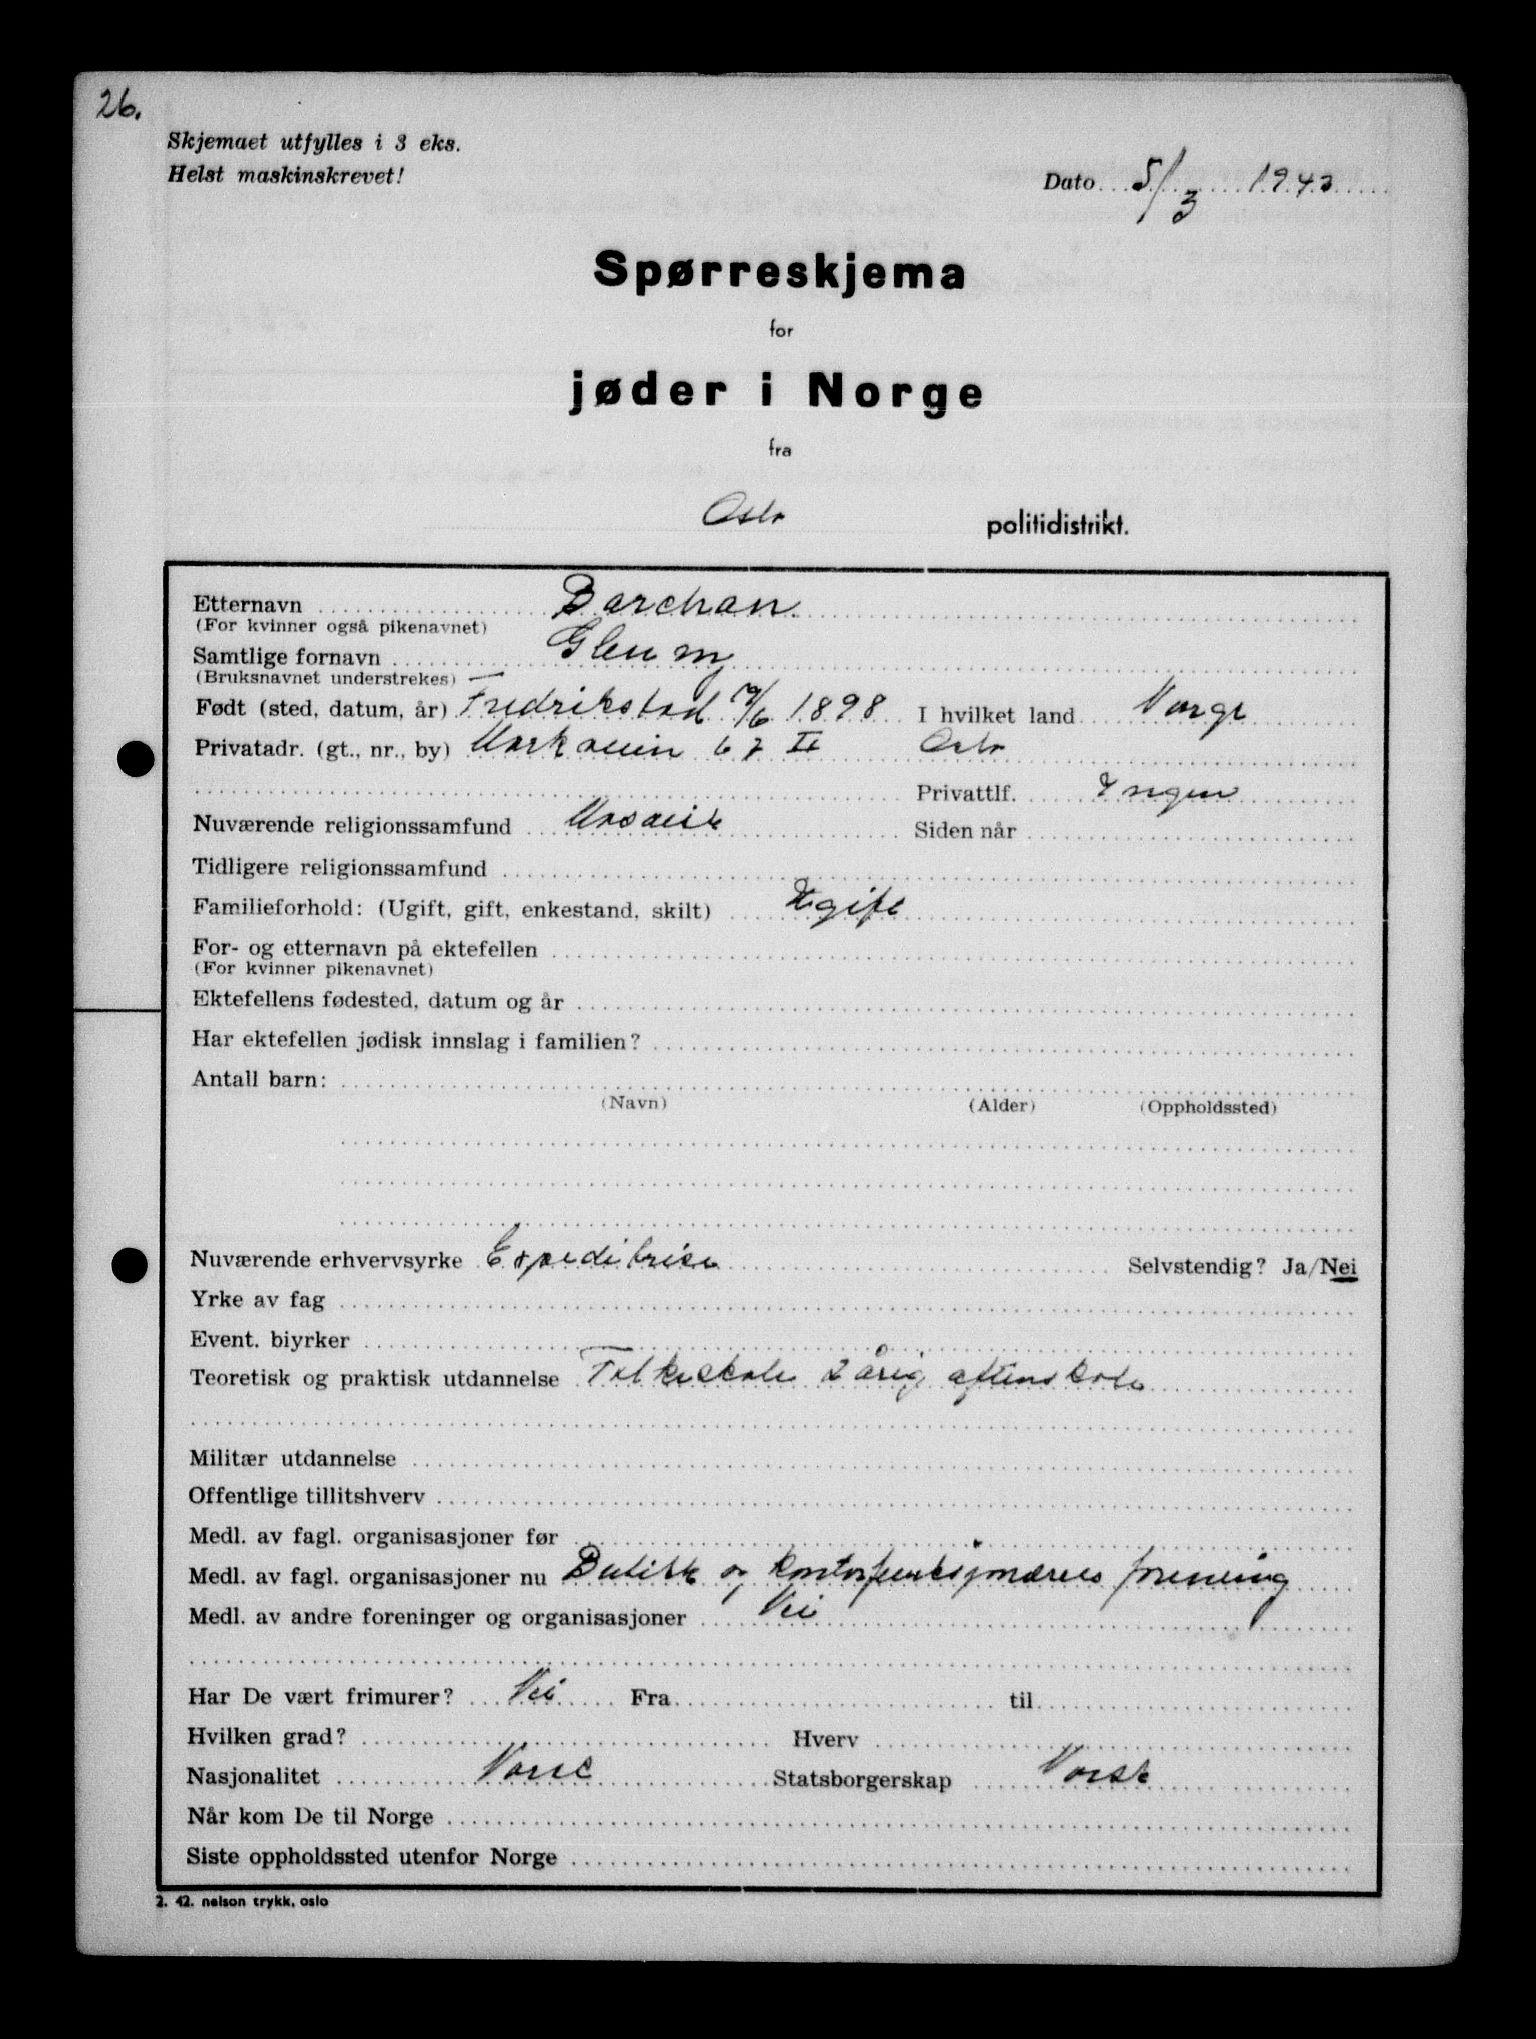 26.
Skjemaet utfylles i 3 eks.
Helst maskinskrevet!
Dato 5/3 1942
Spørreskjema
for
jøder i Norge
fra
Oslo politidistrikt.
Etternavn Barchan
(For kvinner også pikenavnet)
Samtlige fornavn
(Bruksnavnet understrekes)
Født (sted, datum, år) Fredrikstad 19/6 1898 I hvilket land Norge
Privatadr. (gt., nr., by) Markveien 67 II Oslo
Privattlf. Ingen
Nuværende religionssamfund Mosaisk Siden når
Tidligere religionssamfund
Familieforhold: (Ugift, gift, enkestand, skilt) Ugift
For- og etternavn på ektefellen
(For kvinner pikenavnet)
Ektefellens fødested, datum og år
Har ektefellen jødisk innslag i familien?
Antall barn:
(Navn) (Alder) (Oppholdssted)
Nuværende erhvervsyrke Expeditrise Selvstendig? Ja/Nei
Yrke av fag
Event. biyrker
Teoretisk og praktisk utdannelse Folkeskole 2 årig aftenskole
Militær utdannelse
Offentlige tillitshverv
Medl. av fagl. organisasjoner før
Medl. av fagl. organisasjoner nu Butikk og Kontorfunksjonæres forening
Medl. av andre foreninger og organisasjoner Nei
Har De vært frimurer? Nei Fra til
Hvilken grad? Hverv
Nasjonalitet Norsk Statsborgerskap Norsk
Når kom De til Norge
Siste oppholdssted utenfor Norge
2. 42. nelson trykk, oslo